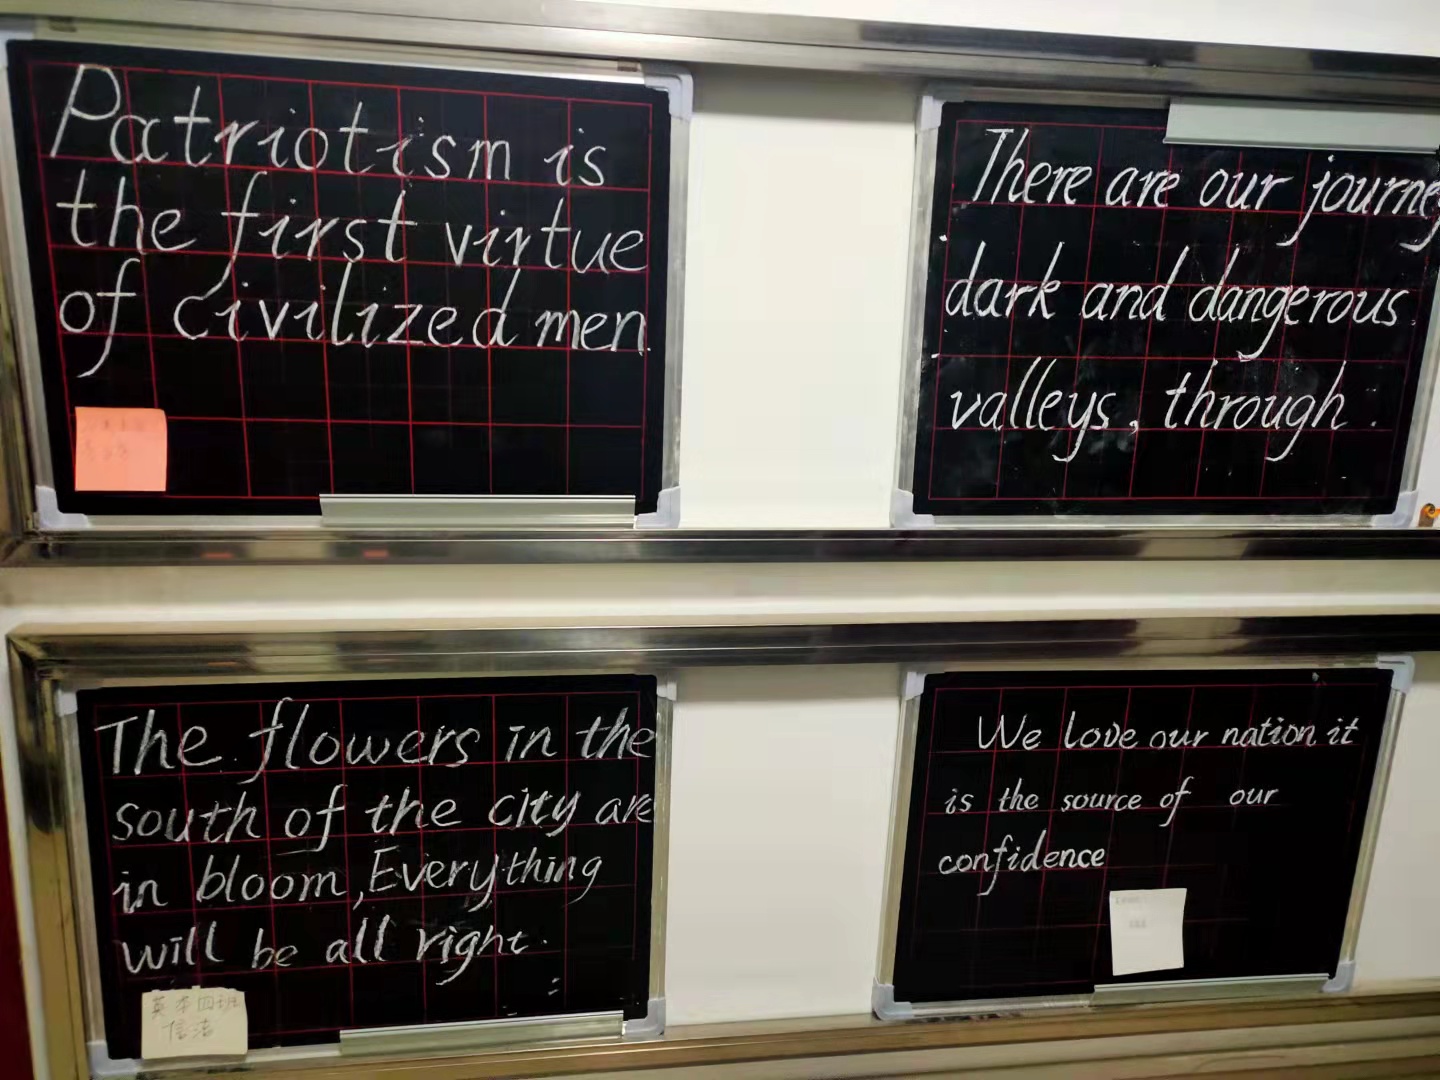 Patriotism is
the first virtue
of civilized men.
There are our journey
dark and dangerous
valleys, through.
The flowers in the
south of the city are
in bloom, Everything
will be all right.
英本四班
We love our nation it
is the source of our
confidence